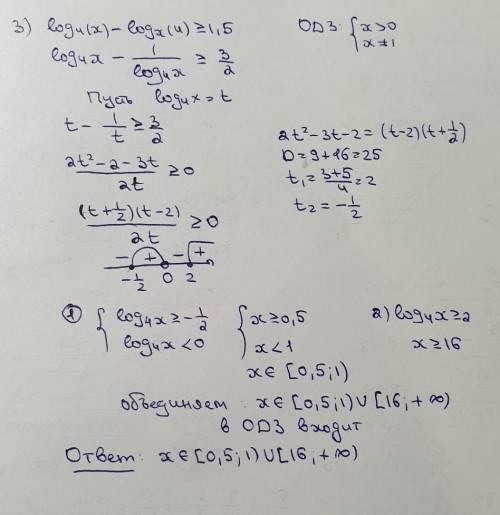 3) log₄(x) - logₓ(4) ≥ 1,5
ОДЗ: { x>0
x≠1
log₄x - 1/log₄x ≥ 3/2
Пусть log₄x = t
t - 1/t ≥ 3/2
(2t² - 2 - 3t)/2t ≥ 0
((t+1/2)(t-2))/2t ≥ 0
- + - +
-1/2 0 2
2t² - 3t - 2 = (t-2)(t+1/2)
D = 9 + 16 = 25
t₁ = (3+5)/4 = 2
t₂ = -1/2
1) { log₄x ≥ -1/2 { x ≥ 0,5
log₄x < 0 x < 1
x ∈ [0,5; 1)
2) log₄x ≥ 2
x ≥ 16
объединяем: x ∈ [0,5; 1) ∪ [16; +∞)
в ОДЗ входит
Ответ: x ∈ [0,5; 1) ∪ [16; +∞)